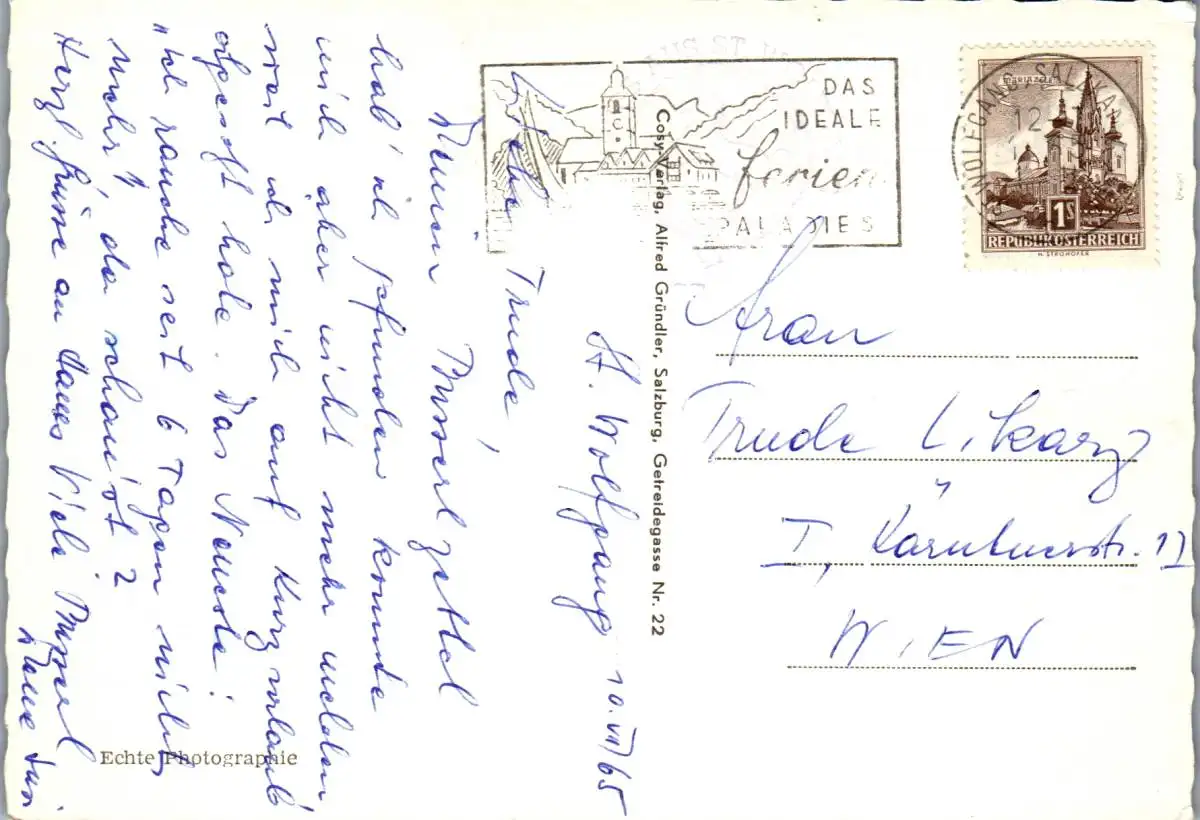 St. Wolfgang 10.VII/65
Liebe Trude,
Deinen Busserl zettel
hab' ich gefunden konnte
mich aber nicht mehr melden,
weil ich mich auf Kurzurlaub
abgesetzt habe. Das Neueste:
"Ich rauche seit 6 Tagen nicht
mehr", da schaust?
Herzl. Grüsse an Hannes Viele Busserl
Deine
Echte Photographie
Cosy-Verlag, Alfred Gründler, Salzburg, Getreidegasse Nr. 22
DAS
IDEALE
ferien
PARADIES
WOLFGANG-SALZKA
12
MARIAZELL
1S
REPUBLIK ÖSTERREICH
H. STROHOFER
Frau
Trude Likarz
I, Kärntnerstr. 17
WIEN